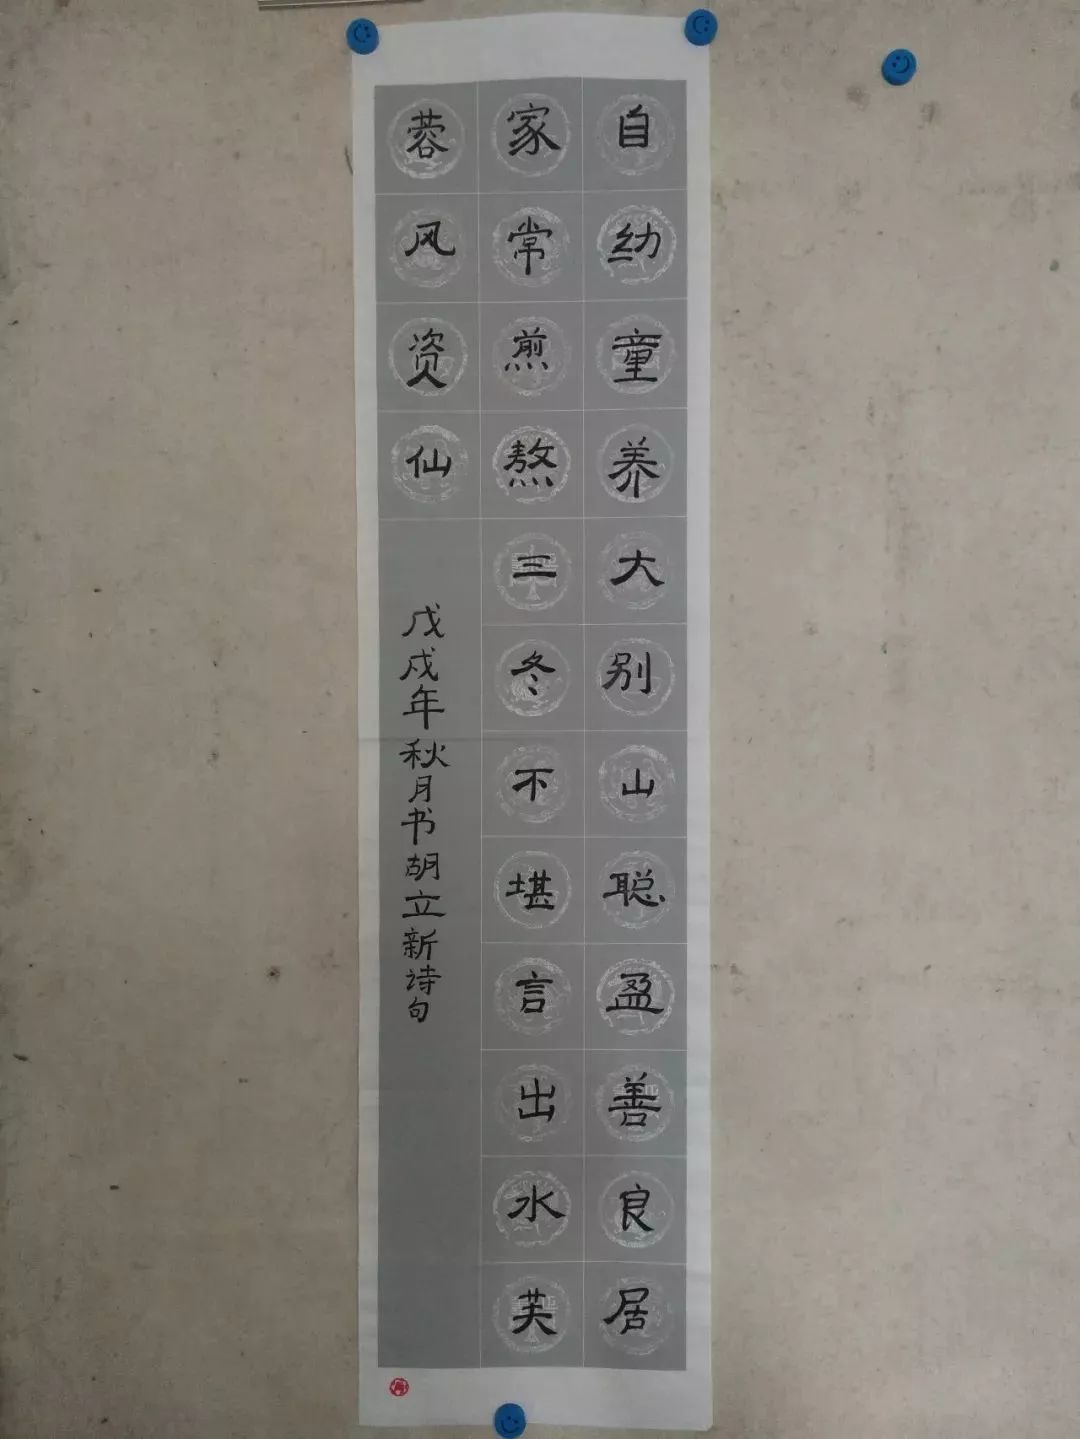 自幼童养大别山聪盈善良居
家常煎熬三冬不堪言出水芙
蓉风资仙
戊戌年秋月书胡立新诗句